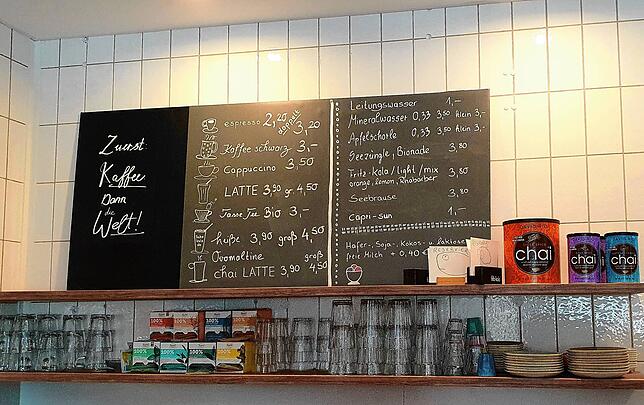 Zuerst:
Kaffee
Dann
die
Welt!
espresso 2,20
doppelt
3,20
Kaffee schwarz 3,-
Cappuccino 3,50
LATTE 3,90 gr. 4,50
Tasse Tee Bio 3,-
heiße 3,90 groß 4,50
Ovomaltine groß
chai LATTE 3,90 4,50
Leitungswasser 1,-
Mineralwasser 0,33 3,50 klein 3,-
Apfelschorle 0,33 3,50 klein 3,-
Seezüngle, Bionade 3,80
Fritz-Kola / light / mix 3,80
orange, lemon, Rhabarber
Seebrause 3,80
Capri-Sun 1,-
Hafer-, Soja-, Kokos- u. laktose
freie Milch + 0,40 €
chai
chai
chai
100%
100%
100%
100%
100%
100%